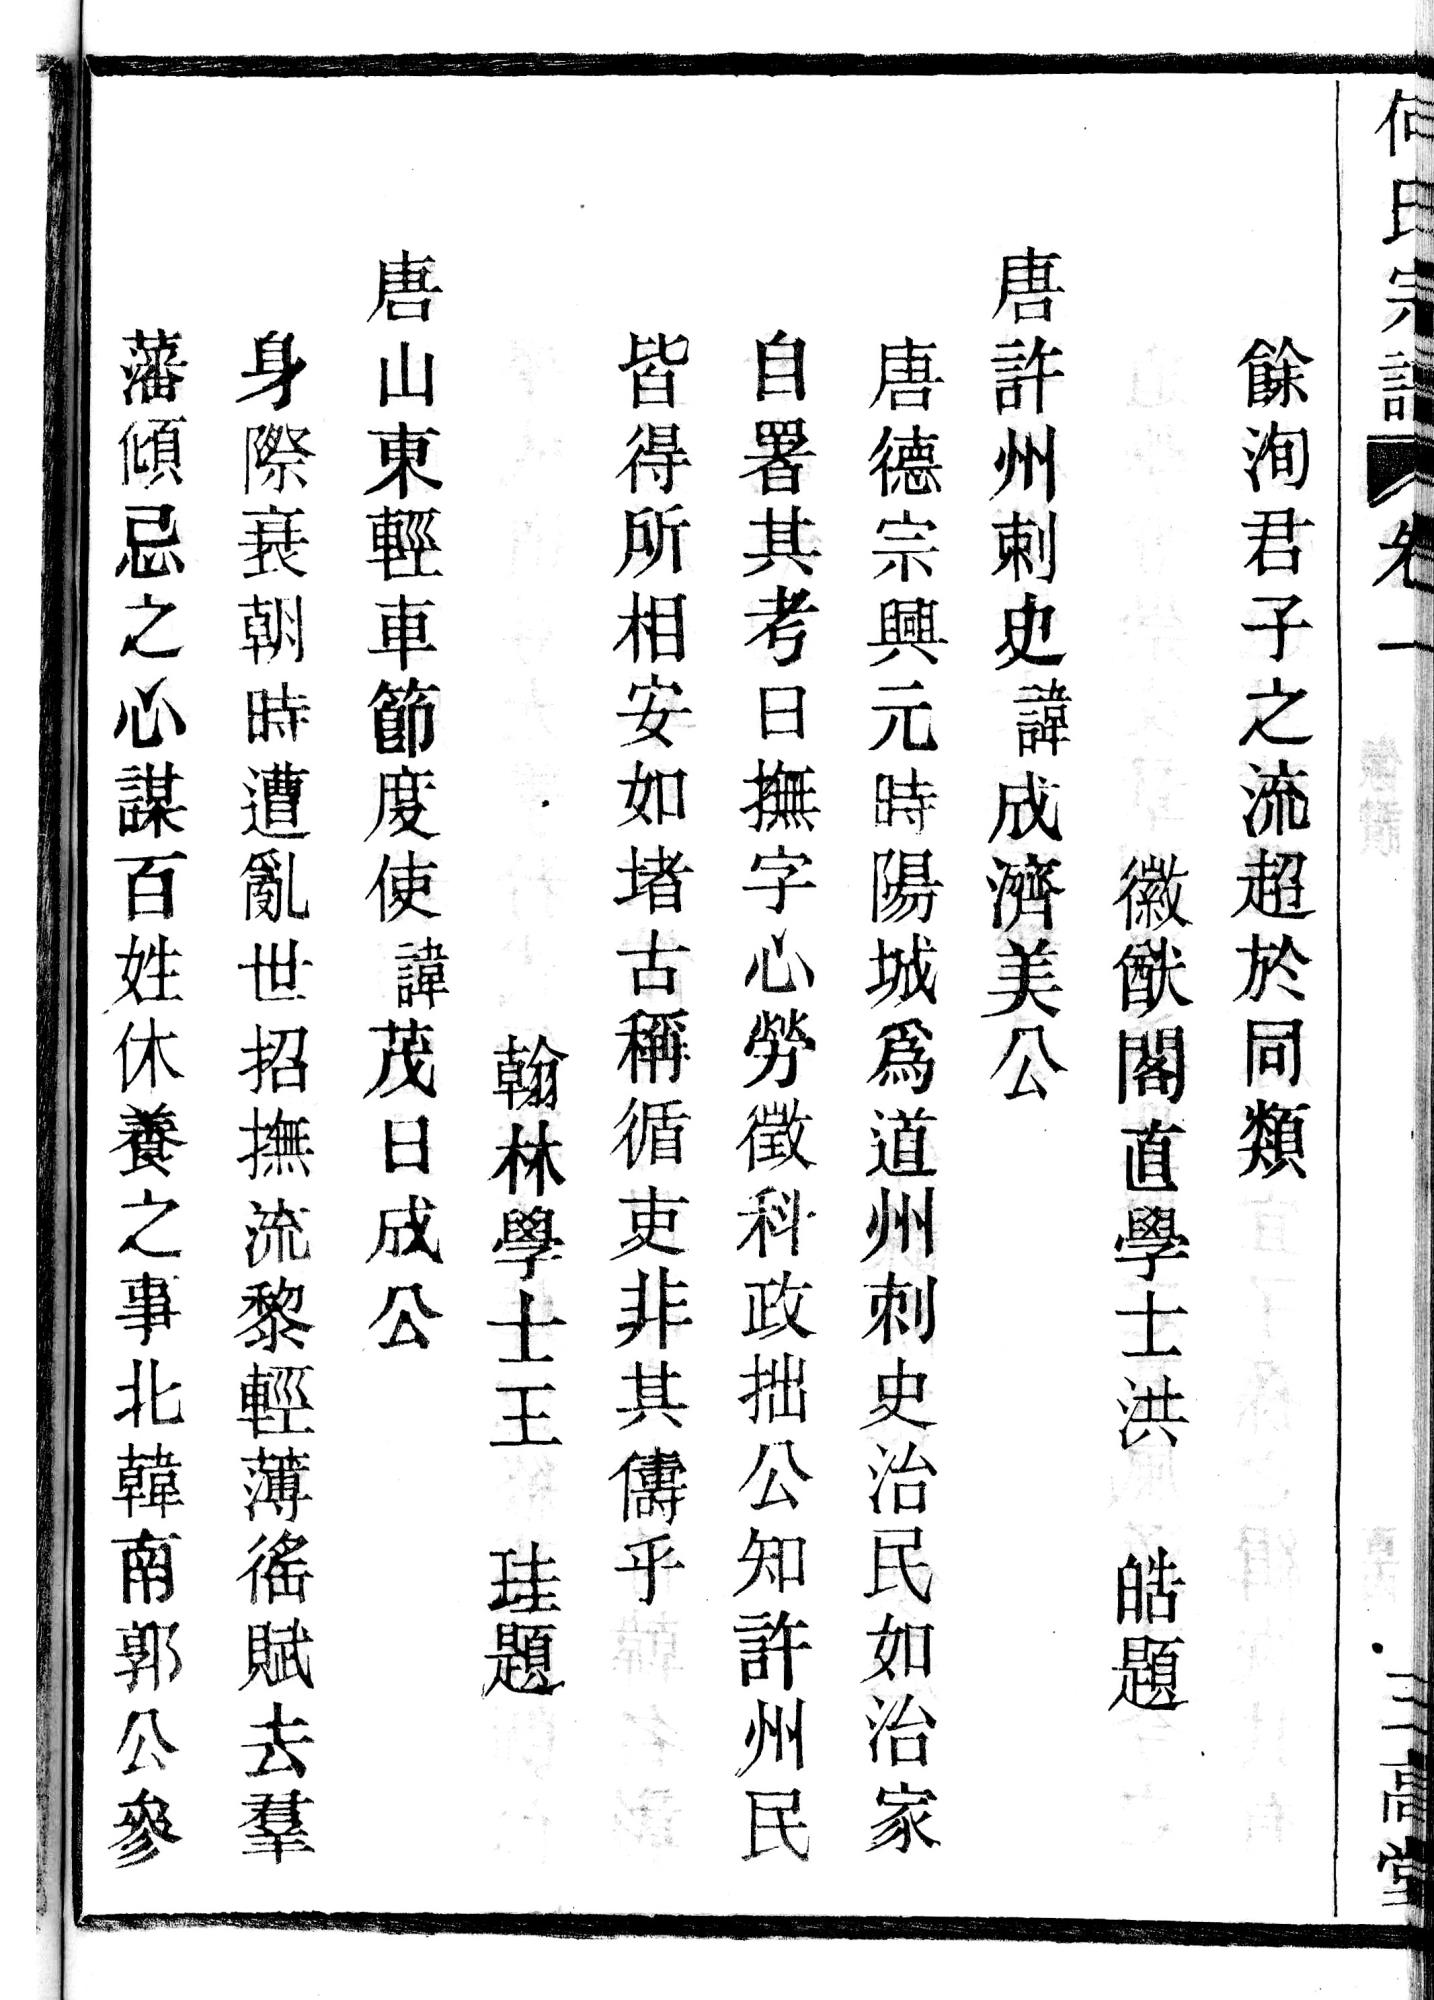 何氏宗譜 卷一 三高堂
餘洵君子之流超於同類
徽猷閣直學士洪 皓題
唐許州刺史諱成濟美公
唐德宗興元時陽城爲道州刺史治民如治家
自署其考曰撫字心勞徵科政拙公知許州民
皆得所相安如堵古稱循吏非其儔乎
翰林學士王 珪題
唐山東輕車節度使諱茂曰成公
身際衰朝時遭亂世招撫流黎輕薄徭賦去羣
藩傾忌之心謀百姓休養之事北韓南郭公參